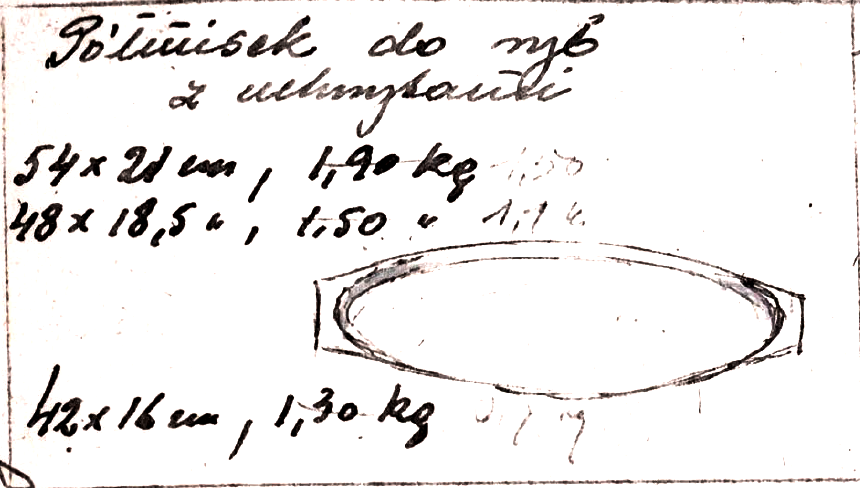 Półmisek do ryb
z uchwytami
54 x 21 cm, 1,90 kg 1,50
48 x 18,5 ", 1,50 "
42 x 16 cm, 1,30 kg